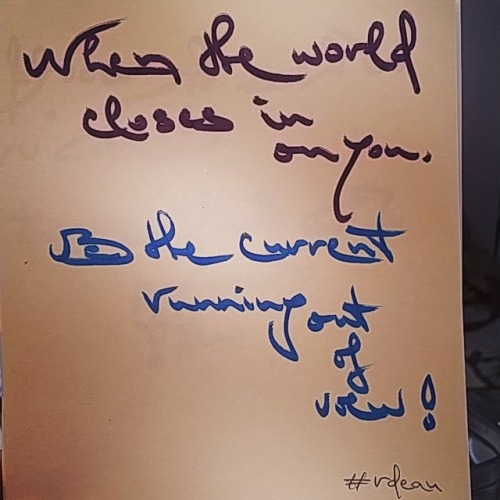 When the world
closes in
on you.
Be the current
running out
of
view!
#rdean